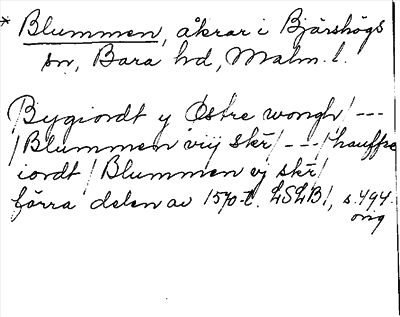 * Blummen, åkrar i Bjärshögs
sn, Bara hd, Malm. l.
Bygiordt y Østre wongh / ---
/ Blummen viij skr / --- / hauffre
iordt / Blummen vj skr /
förra delen av 1570-t. LSLB 1, s. 494.
orig